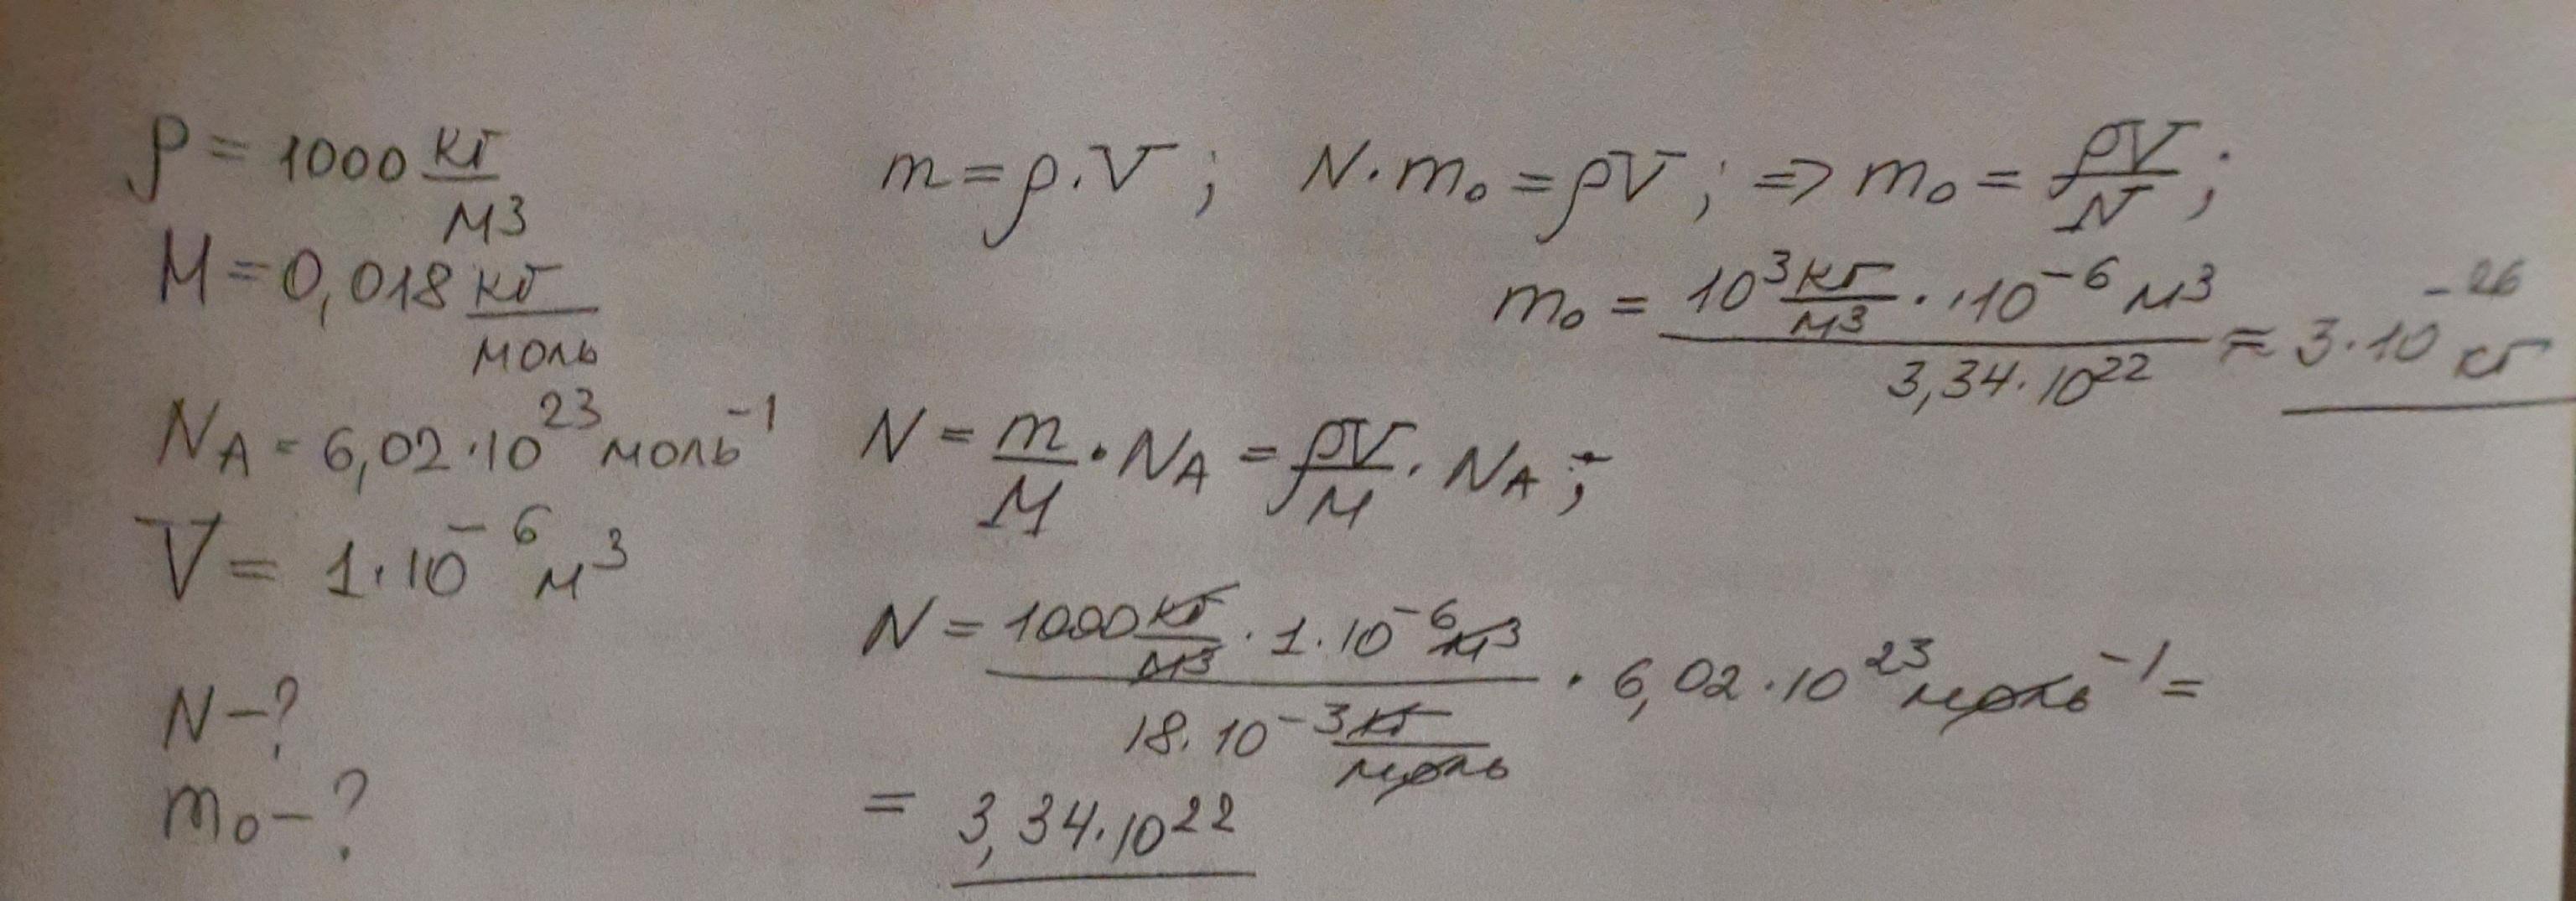 ρ = 1000 кг/м3
M = 0,018 кг/моль
N_A = 6,02·10^23 моль^-1
V = 1·10^-6 м^3
N - ?
m₀ - ?
m = ρ·V ; N·m₀ = ρV ; => m₀ = ρV/N ;
m₀ = (10^3 кг/м^3 · 10^-6 м^3)/(3,34·10^22) ≈ 3·10^-26 кг
N = m/M · N_A = ρV/M · N_A ;
N = (1000 кг/м^3 · 1·10^-6 м^3)/(18·10^-3 кг/моль) · 6,02·10^23 моль^-1 =
= 3,34·10^22